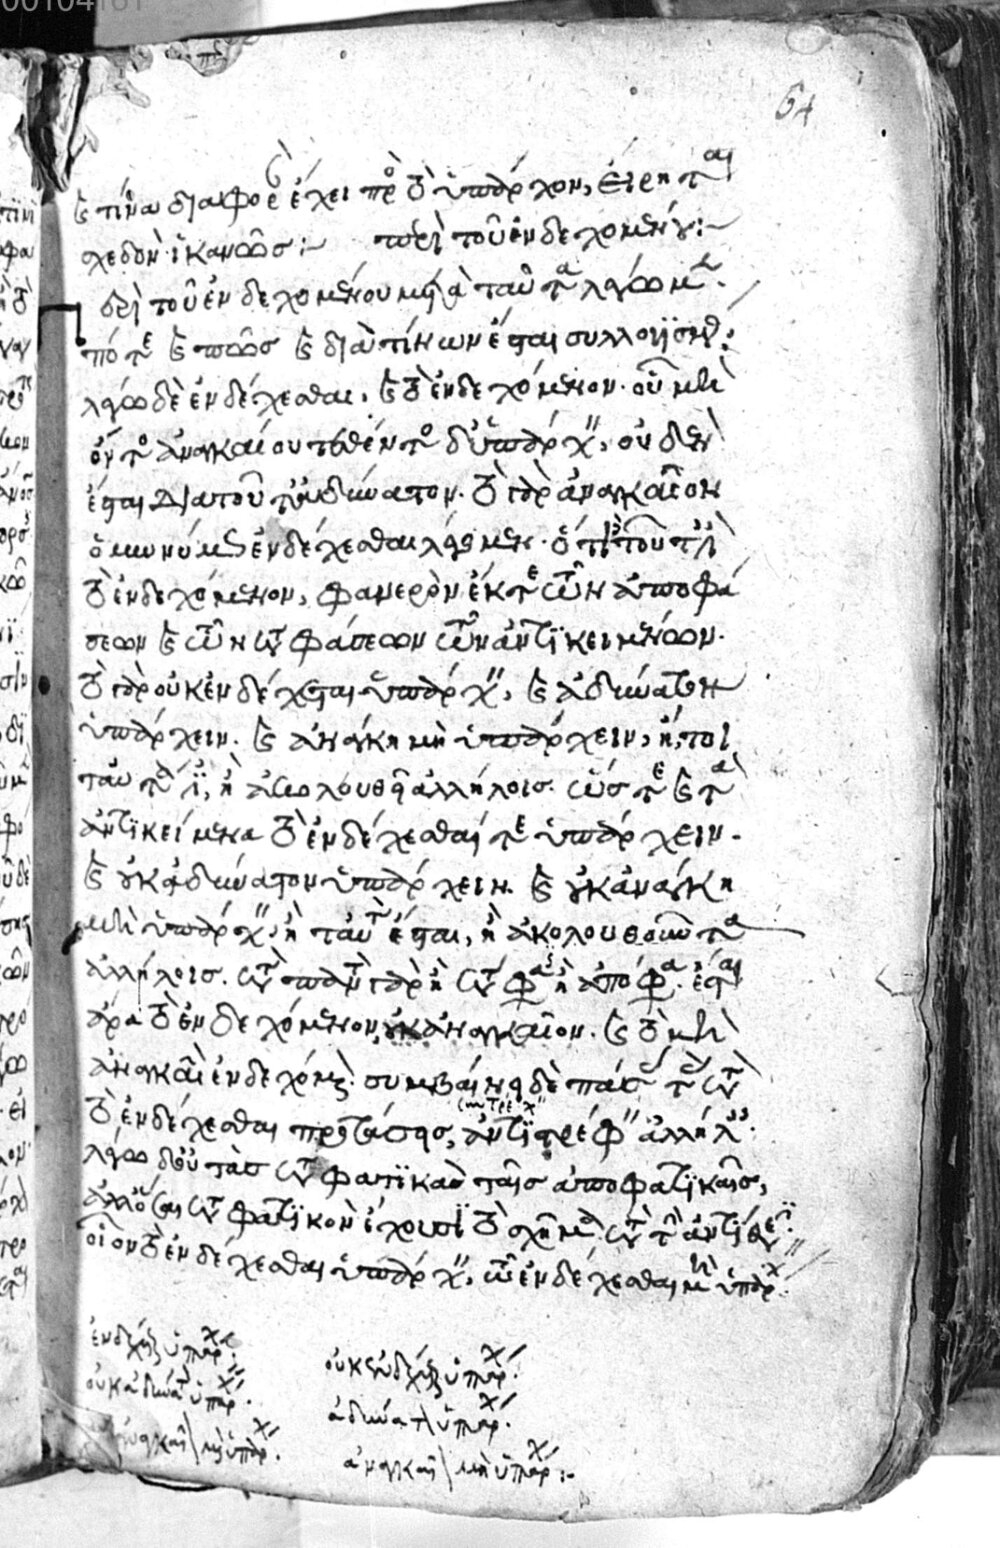 00104161
64
καὶ τίνα διαφορὰν ἔχει πρὸς τὸ ὑπάρχον, εἴρηται
σχεδὸν ἱκανῶς :~ περὶ τοῦ ἐνδεχομένου :~
περὶ τοῦ ἐνδεχομένου μετὰ ταῦτα λέγωμεν.
πότε καὶ πῶς καὶ διὰ τίνων ἔσται συλλογισμός :
λέγω δὲ ἐνδέχεσθαι, καὶ τὸ ἐνδεχόμενον. οὗ μὴ
ὄντος ἀναγκαίου τεθέντος δ' ὑπάρχειν, οὐδὲν
ἔσται διὰ τοῦτ' ἀδύνατον. τὸ γὰρ ἀναγκαῖον
ὁμωνύμως ἐνδέχεσθαι λέγομεν. ὅτι τοῦτ' ἐστὶ
τὸ ἐνδεχόμενον, φανερὸν ἔκ τε τῶν ἀποφά
σεων καὶ τῶν καταφάσεων τῶν ἀντικειμένων.
τὸ γὰρ οὐκ ἐνδέχεται ὑπάρχειν, καὶ ἀδύνατον
ὑπάρχειν. καὶ ἀνάγκη μὴ ὑπάρχειν, ἤτοι
ταὐτά ἐστιν, ἢ ἀκολουθεῖ ἀλλήλοις. ὥστε καὶ τὰ
ἀντικείμενα τὸ ἐνδέχεσθαί τε ὑπάρχειν.
καὶ οὐκ ἀδύνατον ὑπάρχειν. καὶ οὐκ ἀνάγκη
μὴ ὑπάρχειν, ἢ ταὐτὰ ἔσται, ἢ ἀκολουθοῦντα
ἀλλήλοις. κατὰ παντὸς γὰρ ἢ κατάφασις ἢ ἀπόφασις. ἔσται
ἄρα τὸ ἐνδεχόμενον, οὐκ ἀναγκαῖον. καὶ τὸ μὴ
ἀναγκαῖον ἐνδεχόμενον. συμβαίνει δὲ πάσας τὰς κατὰ
τὸ ἐνδέχεσθαι προτάσεις, ἀντιστρέφειν ἀλλήλαις.
λέγω δὲ οὐ τὰς καταφατικὰς ταῖς ἀποφατικαῖς,
ἀλλ' ὅσαι καταφατικὸν ἔχουσι τὸ σχῆμα κατὰ τὴν ἀντίθεσιν.
οἷον τὸ ἐνδέχεσθαι ὑπάρχειν, τῷ ἐνδέχεσθαι μὴ ὑπάρχειν.
ἐνδέχεται ὑπάρχειν. οὐκ ἐνδέχεται ὑπάρχειν.
οὐκ ἀδύνατον ὑπάρχειν. ἀδύνατον ὑπάρχειν.
οὐκ ἀναγκαῖον μὴ ὑπάρχειν. ἀναγκαῖον μὴ ὑπάρχειν :~